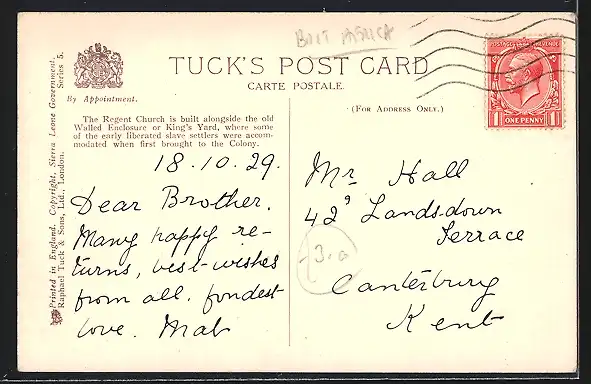 BRIT AFRICA
TUCK'S POST CARD
CARTE POSTALE.
By Appointment.
(For Address Only.)
POSTAGE REVENUE
ONE PENNY
1 1
Printed in England. Copyright, Sierra Leone Government.
Raphael Tuck & Sons, Ltd., London. Series 5.
The Regent Church is built alongside the old
Walled Enclosure or King's Yard, where some
of the early liberated slave settlers were accom-
modated when first brought to the Colony.
18.10.29.
Dear Brother.
Many happy re-
turns, best wishes
from all. fondest
love. Mab
Mr Hall
42 Landsdown
Terrace
Canterbury
Kent